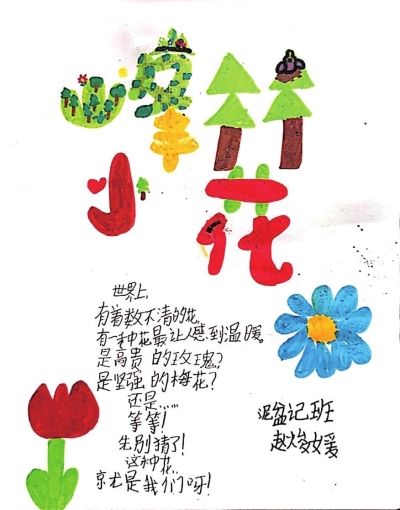 峰林
小花
世界上,
有着数不清的花,
有一种花最让人感到温暖。
是高贵的玫瑰?
是坚强的梅花?
还是……
等等!
先别猜了!
这种花
就是我们呀!
泥盆记班
赵焌媛